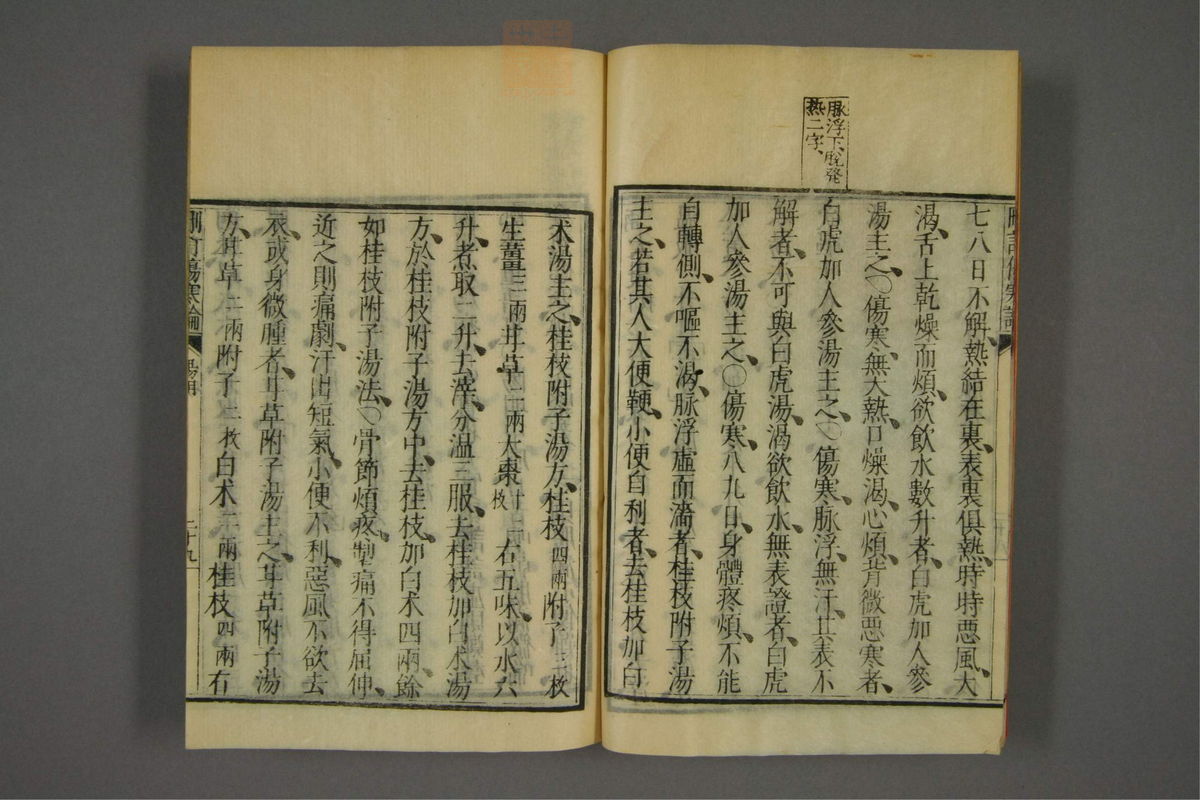 脉浮下脫發
熱二字、
七八日不解、熱結在裏、表裏俱熱、時時惡風、大
渴、舌上乾燥而煩、欲飲水數升者、白虎加人參
湯主之、〇傷寒、無大熱、口燥渴、心煩、背微惡寒者、
白虎加人參湯主之、〇傷寒、脉浮、無汗、其表不
解者、不可與白虎湯、渴欲飲水、無表證者、白虎
加人參湯主之、〇傷寒、八九日、身體疼煩、不能
自轉側、不嘔、不渴、脉浮虛而濇者、桂枝附子湯
主之、若其人大便鞕、小便自利者、去桂枝加白
朮湯主之、桂枝附子湯方、桂枝四兩附子三枚
生薑三兩甘草二兩大棗十二枚右五味、以水六
升、煮取二升、去滓、分溫三服、去桂枝加白朮湯
方、於桂枝附子湯方中、去桂枝、加白朮四兩、餘
如桂枝附子湯法、〇骨節煩疼、掣痛不得屈伸、
近之則痛劇、汗出短氣、小便不利、惡風不欲去
衣、或身微腫者、甘草附子湯主之、甘草附子湯
方、甘草二兩附子二枚白朮二兩桂枝四兩右
刪訂傷寒論
陽明
二十九